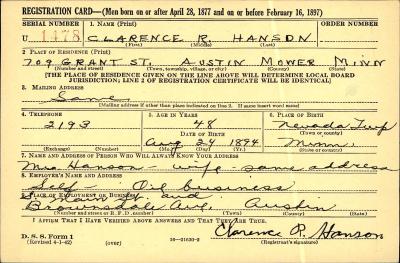 REGISTRATION CARD—(Men born on or after April 28, 1877 and on or before February 16, 1897)
SERIAL NUMBER 1. NAME (Print) ORDER NUMBER
U 1478 CLARENCE R. HANSON
(First) (Middle) (Last)
2. PLACE OF RESIDENCE (Print)
709 GRANT ST. AUSTIN MOWER MINN
(Number and street) (Town, township, village, or city) (County) (State)
[THE PLACE OF RESIDENCE GIVEN ON THE LINE ABOVE WILL DETERMINE LOCAL BOARD
JURISDICTION; LINE 2 OF REGISTRATION CERTIFICATE WILL BE IDENTICAL]
3. MAILING ADDRESS
Same
[Mailing address if other than place indicated on line 2. If same insert word same]
4. TELEPHONE 5. AGE IN YEARS 6. PLACE OF BIRTH
2193 48 Nevada Twp
DATE OF BIRTH (Town or county)
Aug 24 1894 Minn.
(Exchange) (Number) (Mo.) (Day) (Yr.) (State or country)
7. NAME AND ADDRESS OF PERSON WHO WILL ALWAYS KNOW YOUR ADDRESS
Mrs Hanson - wife - same address
8. EMPLOYER'S NAME AND ADDRESS
Self Oil business
9. PLACE OF EMPLOYMENT OR BUSINESS
Main St. and
Brownsdale Ave. Austin
(Number and street or R. F. D. number) (Town) (County) (State)
I AFFIRM THAT I HAVE VERIFIED ABOVE ANSWERS AND THAT THEY ARE TRUE.
D. S. S. Form 1
(Revised 4-1-42) (over) 16—21630-2
Clarence R. Hanson
(Registrant's signature)